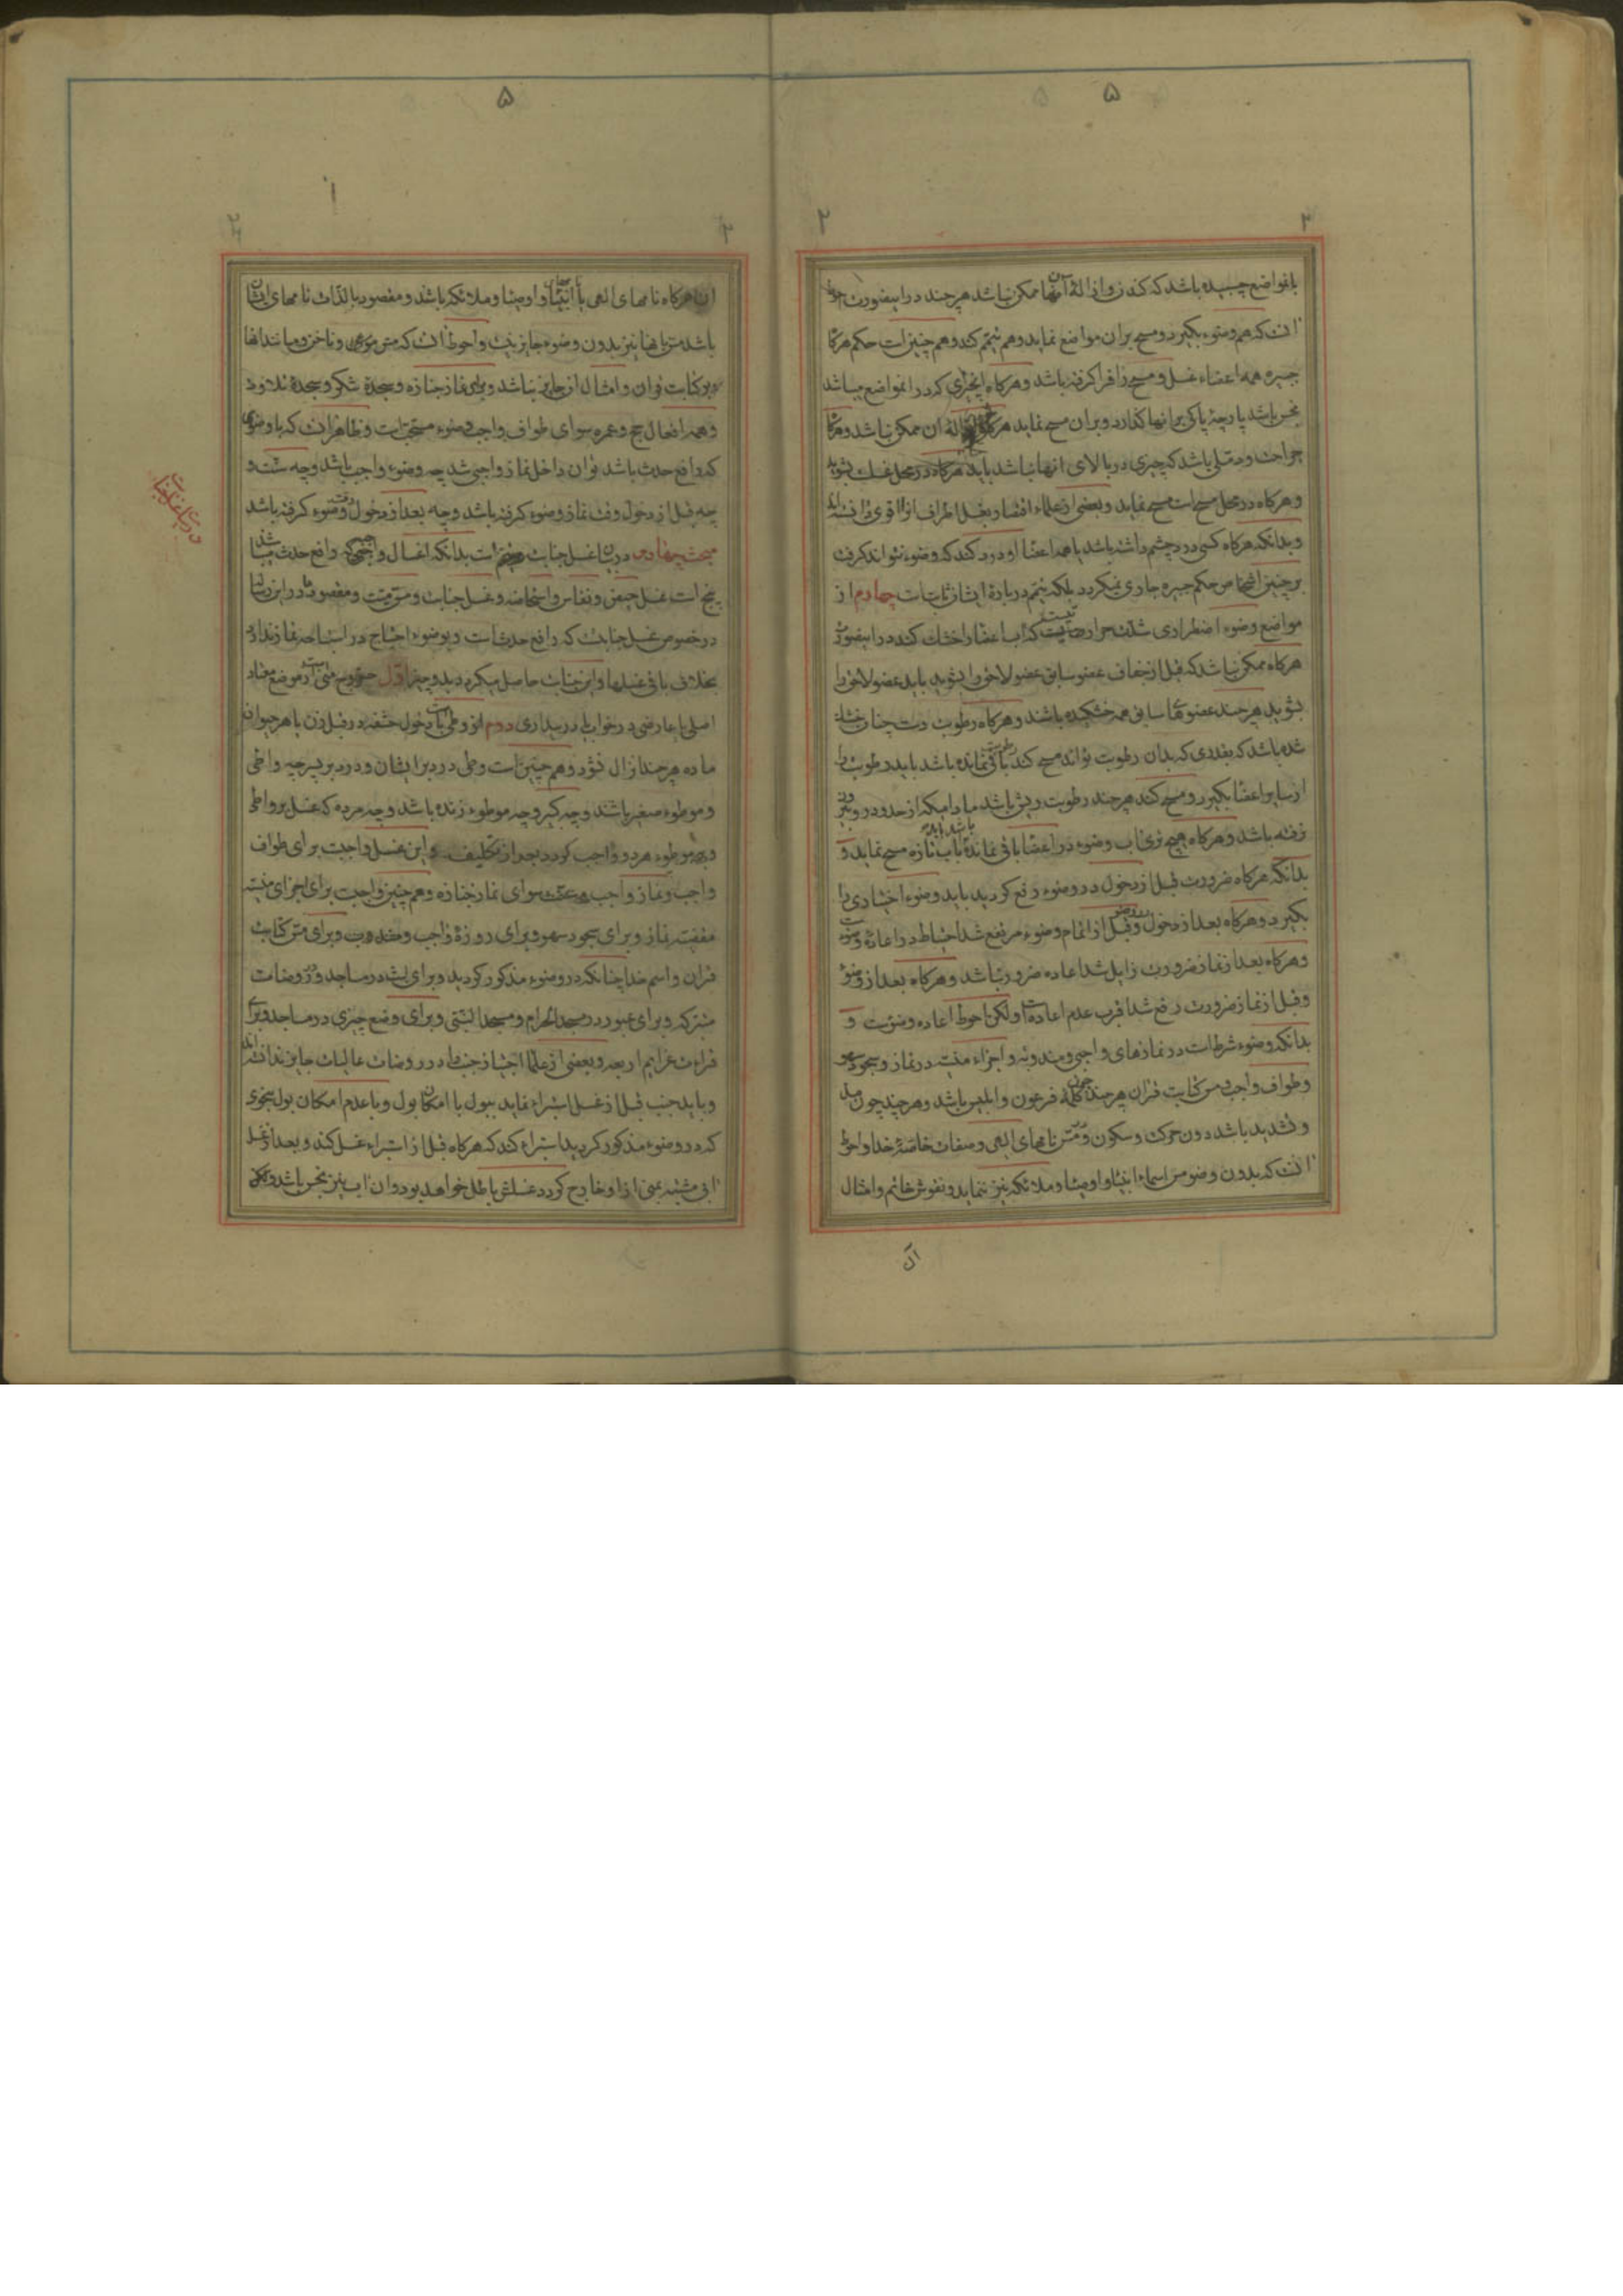 ۵
۲
۲
بانمواضع چسبیده باشد که کندن و ازاله آنها ممکن نباشد هر چند در اینصورت احوط
انست که هم وضوء بگیرد و مسح بران مواضع نماید و هم تیمم کند و هم چنین است حکم هرگاه
جبیره همه اعضاء غسل و مسح را فرا گرفته باشد و هرگاه انچیزی که در انمواضع میباشد
نجس باشد پارچهٔ پاکی برانها گذارد و بران مسح نماید هرگاه ازالهٔ ان ممکن نباشد و هرگاه
جراحت و دملی باشد که چیزی در بالای انها نباشد باید هرگاه در محل غسلست بشوید
و هرگاه در محل مسح است مسح نماید و بعضی از علماء اقتصار بغسل اطراف انرا قوی دانسته‌اند
و بدانکه هرگاه کسی درد چشم داشته باشد یا همه اعضا او درد کند که وضوء نتواند گرفت
بر چنین اشخاص حکم جبیره جاری نمیگردد بلکه تیمم در بارهٔ ایشان ثابت است چهارم از
مواضع وضوء اضطراری شدت حرارت که آب اعضا را خشک کند در اینصورت
هرگاه ممکن نباشد که قبل از جفاف عضو سابق عضو لاحق را بشوید باید عضو لاحق را
بشوید هر چند عضوهای سابق همه خشکیده باشند و هرگاه رطوبت دست چنان خشک
شده باشد که بقدری که بدان رطوبت تواند مسح کند باقی نمانده باشد باید رطوبت را
از سایر اعضا بگیرد و مسح کند هر چند رطوبت ریش باشد مادامیکه از حدود رو بیرون
نرفته باشد و هرگاه هیچ تری اب وضوء در اعضا باقی نمانده باشد باب تازه مسح نماید و
بدانکه هرگاه ضرورت قبل از دخول در وضوء رفع گردید باید وضوء اختیاری را
بگیرد و هرگاه بعد از دخول در وضو و قبل از اتمام وضوء مرتفع شد احتیاط در اعادهٔ وضوءست
و هرگاه بعد از نماز ضرورت زایل شد اعاده ضرور نباشد و هرگاه بعد از وضوء
و قبل از نماز ضرورت رفع شد اقرب عدم اعاده است ولکن احوط اعاده وضوست و
بدانکه وضوء شرطست در نمازهای واجبی و مندوبه و اجزاء منسیه در نماز و سجود سهو
و طواف واجب و مس کتابت قران هر چند چون کلمه فرعون و ابلیس باشد و هر چند چون مد
و تشدید باشد دون حرکت و سکون و در مس نامهای الهی و صفات خاصهٔ خدا و احوط
انست که بدون وضو مس اسماء انبیاء و اوصیاء و ملائکه نیز ننماید و نقوش خاتم و امثال
ان
۵
۱
۲
ان هرگاه نامهای الهی یا انبیاء و اوصیاء و ملائکه باشد و مقصود بالذات نامهای ایشان
باشد مس انها نیز بدون وضوء جایز نیست و احوط انست که مس موی و ناخن و مانند انها
بر کتابت قران و امثال ان جایز نباشد و برای نماز جنازه و سجدهٔ شکر و سجدهٔ تلاوت
و همه افعال حج و عمره سوای طواف واجب وضوء مستحب است و ظاهر انست که با وضوئی
که رافع حدث باشد توان داخل نماز واجبی شد چه وضوء واجب باشد و چه سنت و
چه قبل از دخول وقت نماز وضوء گرفته باشد و چه بعد از دخول وقت وضوء گرفته باشد
مبحث چهارم در بیان غسل جنابت است بدانکه اغسال واجبی که رافع حدث میباشد
پنج است غسل حیض و نفاس و استحاضه و غسل جنابت و مس میت و مقصود ما در این رساله
در خصوص غسل جنابت که رافع حدث است و بوضوء احتیاج در استباحه نماز ندارد
بخلاف باقی غسلها و این جنابت حاصل میگردد بدو چیز اول خروج منی است از موضع معتاد
اصلی یا عارضی در خواب یا در بیداری دوم از وطی است بدخول حشفه در قبل زن یا هر حیوان
ماده هر چند انزال نشود و هم چنین است وطی در دبر ایشان و در دبر پسر چه واطی
و موطوء صغیر باشند و چه کبیر و چه موطوء زنده باشد و چه مرده که غسل بر واطی
و بر موطوء هر دو واجب گردد بعد از تکلیف و این غسل واجبست برای طواف
واجب و نماز واجب و سنت سوای نماز جنازه و هم چنین واجبست برای اجزای منسیه
نماز و برای سجود سهو و برای روزهٔ واجب و مندوب و برای مس کتابت
قران و اسم خدا چنانکه در وضوء مذکور گردید و برای لبث در مساجد و در روضات
متبرکه و برای عبور در مسجد الحرام و مسجد النبی و برای وضع چیزی در مساجد و برای
قراءت عزایم اربعه و بعضی از علما اجتیاز جنب را در روضات عالیات جایز ندانسته‌اند
و باید جنب قبل از غسل استبراء نماید ببول با امکان بول و با عدم امکان بول بنحوی
که در وضوء مذکور گردید استبراء کند که هرگاه قبل از استبراء غسل کند و بعد از غسل
ابی مشتبه بمنی از او خارج گردد غسلش باطل خواهد بود و ان اب نیز نجس باشد